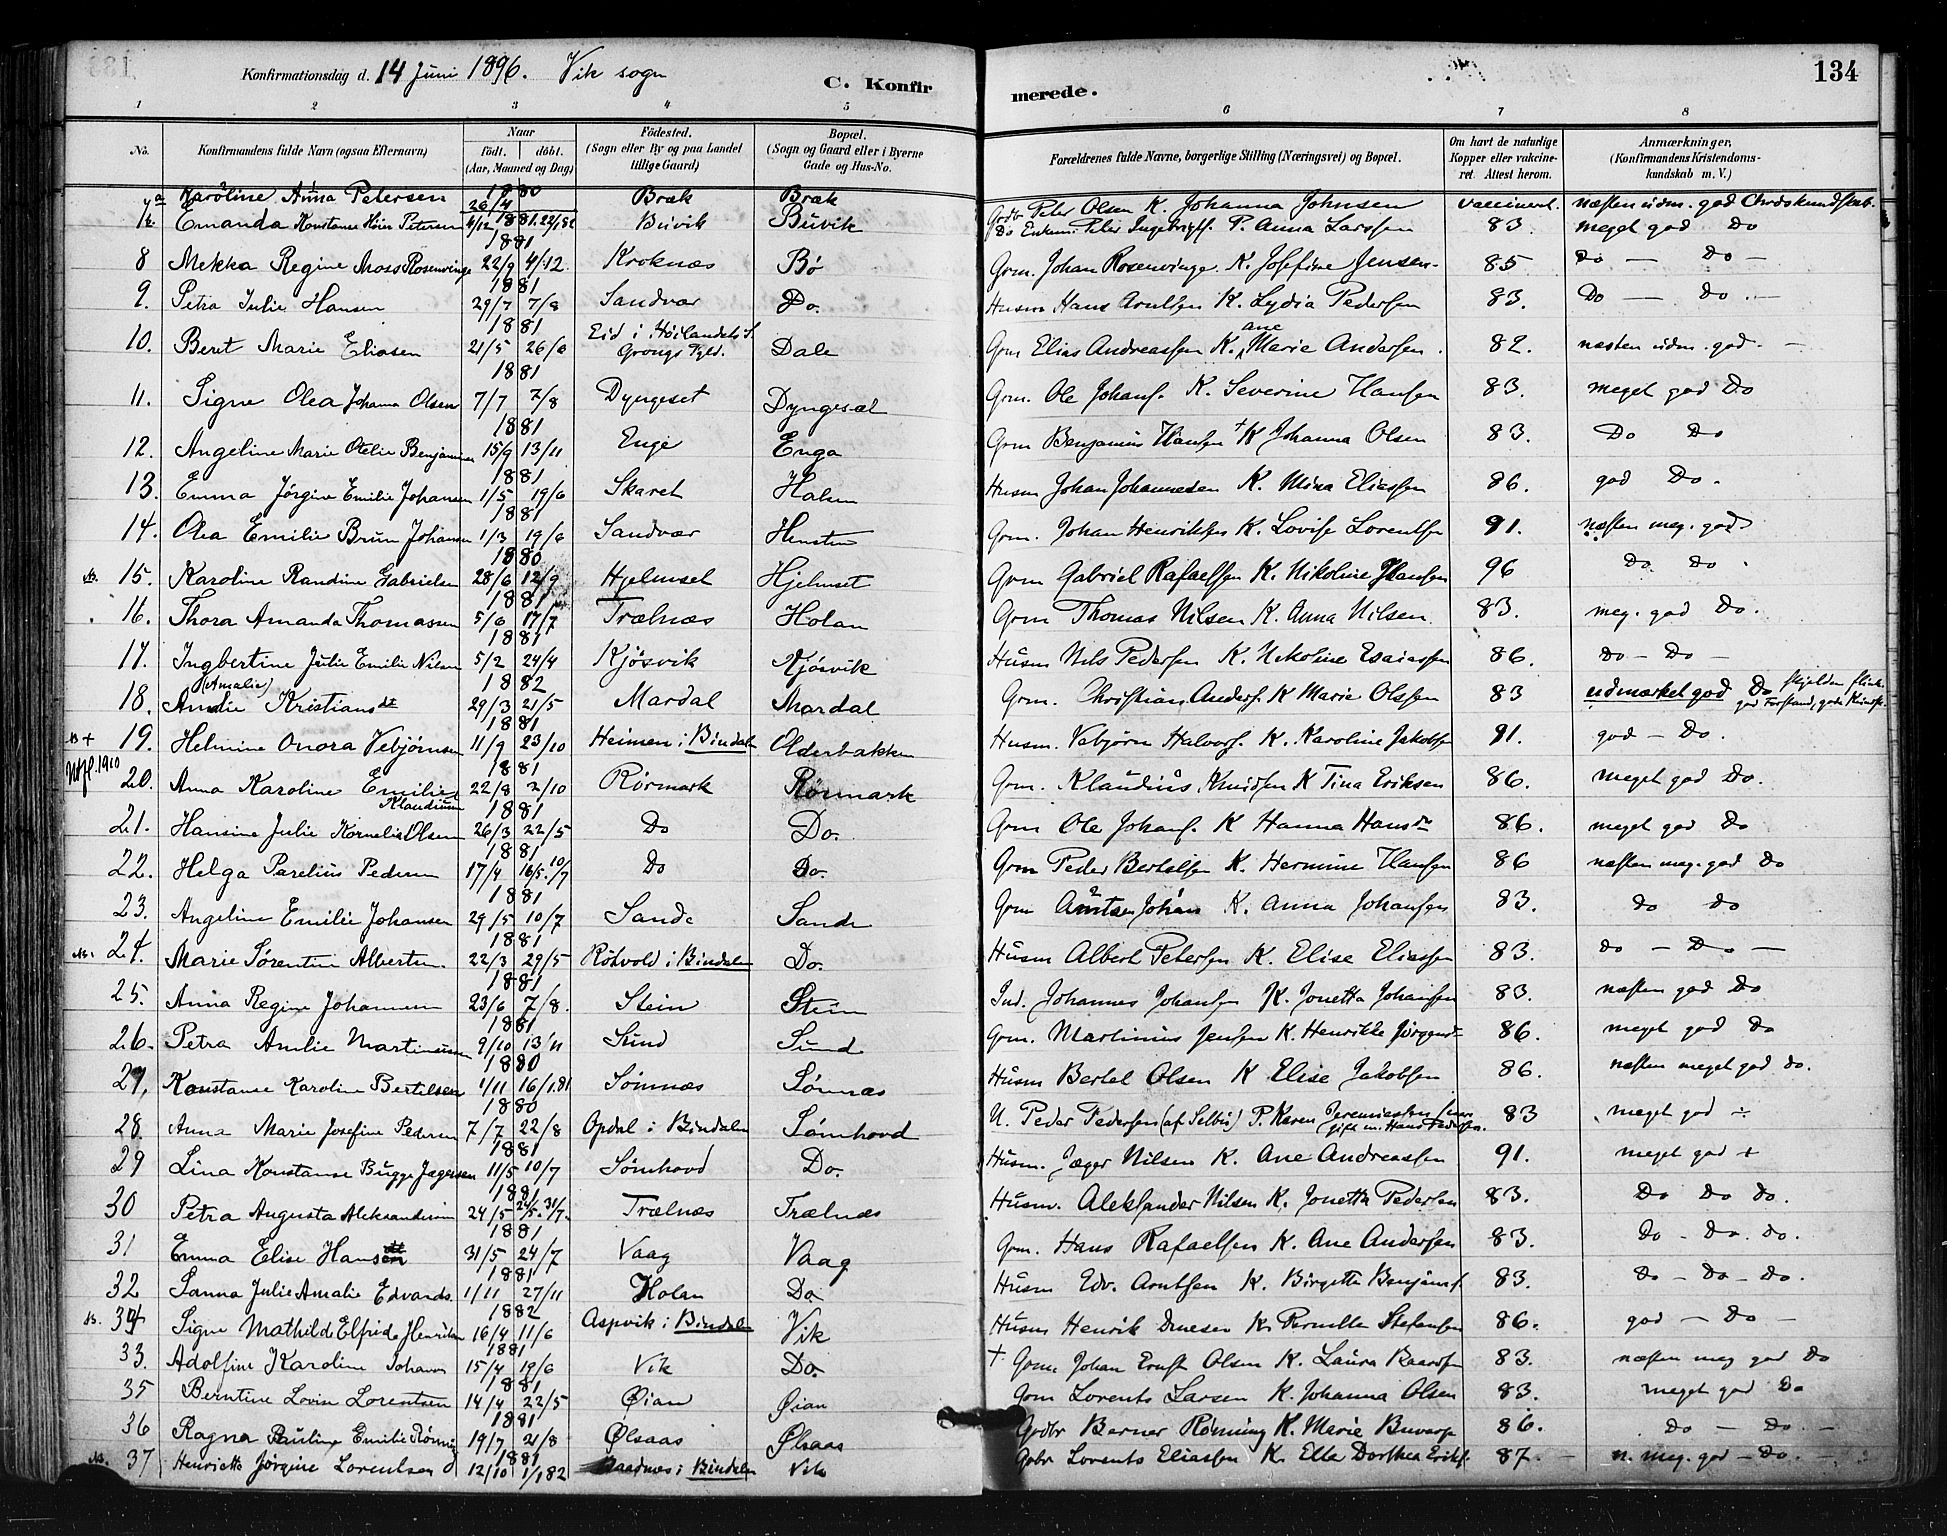 Konfirmationsdag d. 14 Juni 1896. Vik sogn
C. Konfirmerede.
134
1 2 3 4 5 6 7 8
No. Konfirmandens fulde Navn (ogsaa Efternavn) Naar födt. döbt. (Aar, Maaned og Dag) Födested. (Sogn eller By og paa Landet tillige Gaard) Bopæl. (Sogn og Gaard eller i Byerne Gade og Hus-No. Forældrenes fulde Navne, borgerlige Stilling (Næringsvei) og Bopæl. Om havt de naturlige Kopper eller vakcineret. Attest herom. Anmærkninger, (Konfirmandens Kristendomskundskab m. V.)
7a Karoline Anna Petersen 1880 26/4 Bræk Bræk Grdbr Peter Olsen K. Johanna Johnsen vaccineret. næsten udm. god Chrdskundskab.
b. Emanda Konstanse Höier Petersen 4/12 1881. 22/1 82 Buvik Buvik Do Enkem. Peter Ingebrigts. P. Anna Larssen 83. meget god Do
8 Mekka Regine Moss Rosenvinge 1881 22/9 4/12 Kroknæs Bö Grm. Johan Rosenvinge. K. Josefine Jensen. 85. Do — Do —
9. Petra Julie Hansen 1881 29/7 7/8 Sandvær Do. Husm Hans Arntsen K. Lydia Pedersen 83. Do — Do —
10. Beret Marie Eliasen 1881 21/5 26/6 Eid i Höilandets S. Grongs Pgld. Dale Grm Elias Andreassen K. ane Marie Andersen. 82. næsten udm. god. —
11. Signe Olea Johanna Olsen 1881 7/7 7/8 Dyngeset Dyngesæt Grm. Ole Johans. K. Severine Hansen 83. meget god Do
12. Angeline Marie Otelie Benjaminsen 1881 15/9 13/11 Enge Enga Grm Benjamin Hansen + K Johanna Olsen 83. Do Do
13. Emma Jörgine Emilie Johansen 1881 1/5 19/6 Skaret Halsen Husm Johan Johannesen K. Mina Eliassen 86. god Do.
14. Olea Emilie Brun Johansen 1881 1/3 19/6 Sandvær Hensten Grm. Johan Henriksen K. Lovise Lorentsen 91. næsten meg. god
15. Karoline Randine Gabrielsen 1880 28/6 12/9 Hjelmset Hjelmset Grm Gabriel Rafaelsen K. Nikoline Hansen 96 Do Do
16. Thora Amanda Thomassen 1881 5/6 17/7 Trælnæs Holan Grm Thomas Nilsen K. Anna Nilsen 83. meg. god Do.
17. Ingbertine Julie Emilie Nilsen 1881 5/2 24/4 Kjösvik Kjösvik Husm Nils Pedersen K. Nikoline Esaiassen 86. Do — Do —
18. (Amalie) Amalie Kristiansdt 1882 29/3 21/5 Mardal Mardal Grm. Christian Anders. K Marie Olssen 83 udmærket god Do skjelden flink god Forstand, gode Kundsk.
+ 19. Helmine Onora Vebjörnsen 1881 11/9 23/10 Heimen i Bindalen Olderbakken Husm. Vebjörn Halvors. K. Karoline Jakobsen 91. god — Do.
1910 20. Anna Karoline Emilie Klaudiusen 1881 22/8 2/10 Rörmark Rörmark Grm. Klaudius Knudsen K Tina Eriksen 86. meget god Do.
21. Hansine Julie Kornelie Olsen 1881 26/3 22/5 Do Do. Grm Ole Johans. K Hanna Hansdr 86. meget god Do
22. Helga Parelius Pedersen 1881 17/4 16/5. 10/7 Do Do. Grm Peder Bertelsen K. Hermine Hansen 86 næsten meg. god Do
23. Angeline Emilie Johansen 1881 29/5 10/7 Sande Sande Grm Arntsen Johan K. Anna Johansen 83. Do Do
24. Marie Sörentine Albertsen. 1881 22/3 29/5 Rötvold i Bindalen Do. Husm Albert Petersen K. Elise Eliassen 83. do — Do —
25. Anna Regine Johannesen 1881 23/6 7/8. Stein Stein Ind. Johannes Johansen K. Jonetta Johansen 83. næsten god Do
26. Petra Amlie Martinussen 1881 9/10 13/11 Sund Sund Grm. Martinius Jensen K. Henrikke Jörgensd 86. meget god Do
27. Konstanse Karoline Bertelsen 1880 1/11 16/1 81 Sömnæs Sömnæs Husm Bertel Olsen K Elise Jakobsen 86. næsten meget god do.
28. Anna Marie Josefine Pedersen 1880 7/7 22/8 Opdal i Bindalen Sömhovd U. Peder Pedersen (af Selbu) P. Karen Jeremiassen gift m. Hans Pedersen. 83 meget god ÷
29 Lina Konstanse Bugge Jægersen 1881 11/5 10/7 Sömhovd Do. Husm. Jæger Nilsen K. Ane Andreassen 91. meget god +
30 Petra Augusta Aleksandersen 1881 24/5 31/7 Trælnæs Trælnæs Husm. Aleksander Nilsen K. Jonetta Pedersen 83. Do Do do.
31 Emma Elise Hansdt 1881 31/5 24/7 Vaag Vaag Grm. Hans Rafaelsen K. Ane Andersen 83. Do — Do. do.
32 Sanna Julie Amalie Edvards. 1881 1/11 27/11 Holan Do Husm Edv. Arntsen K. Birgitta Benjamins. 83. Do — Do — Do.
34 Signe Mathilde Elfride Henriksen 1882 16/4 11/6 Aspvik i Bindalen Vik Husm Henrik Enesen K. Pernilla Stefansen 86. god — Do —
33. Adolfine Karoline Johans 1881 15/4 19/6 Vik Do. + Grm Johan Ernst Olsen K. Laura Baardsen 83. næsten meg god Do
35 Berntine Lovise Lorentsen 1881 14/4 22/5 Öian Öian Grm Lorents Larsen K. Johanna Olsen 83. meget god Do
36 Ragna Pauline Emilie Rönning 1881 19/7 21/8 Ölsaas Ölsaas Grdbr Berner Rönning K. Marie Buvarp 86. Do — Do —
37 Henriette Jörgine Lorentsen 1881 12/10 1/1 82 Baadnæs i Bindalen Vik Gabr Lorents Eliassen K. Elta Dorthea Eriks. 87. n. meg. god — Do. —